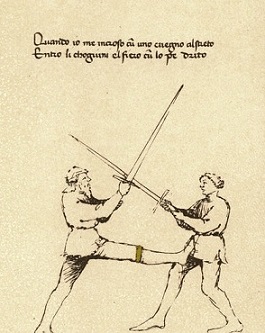 Quando io me incroso cū uno e vegno al streto
Entro li choglioni el fiero cū lo pe drito